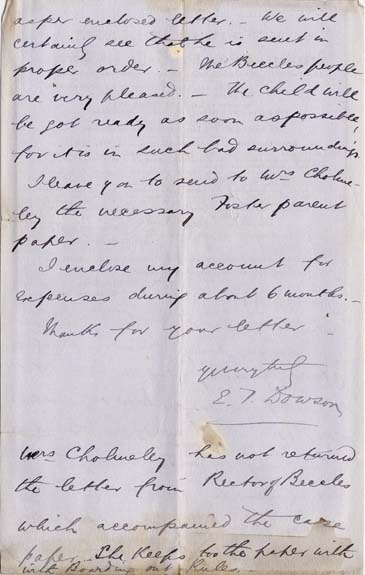 asper enclosed letter. - We will
certainly see that he is sent in
proper order. - The Beccles people
are very pleased. - The child will
be got ready as soon as possible,
for it is in such bad surroundings.
I leave you to send to Mrs Cholme-
ley the necessary Foster parent
paper. -
I enclose my account for
expenses during about 6 months. -
Thanks for your letter -
E. T. Dowson
Mrs Cholmeley has not returned
the letter from Rector of Beccles
which accompanied the case
paper. She keeps too the paper with
with Boarding out Rules. -